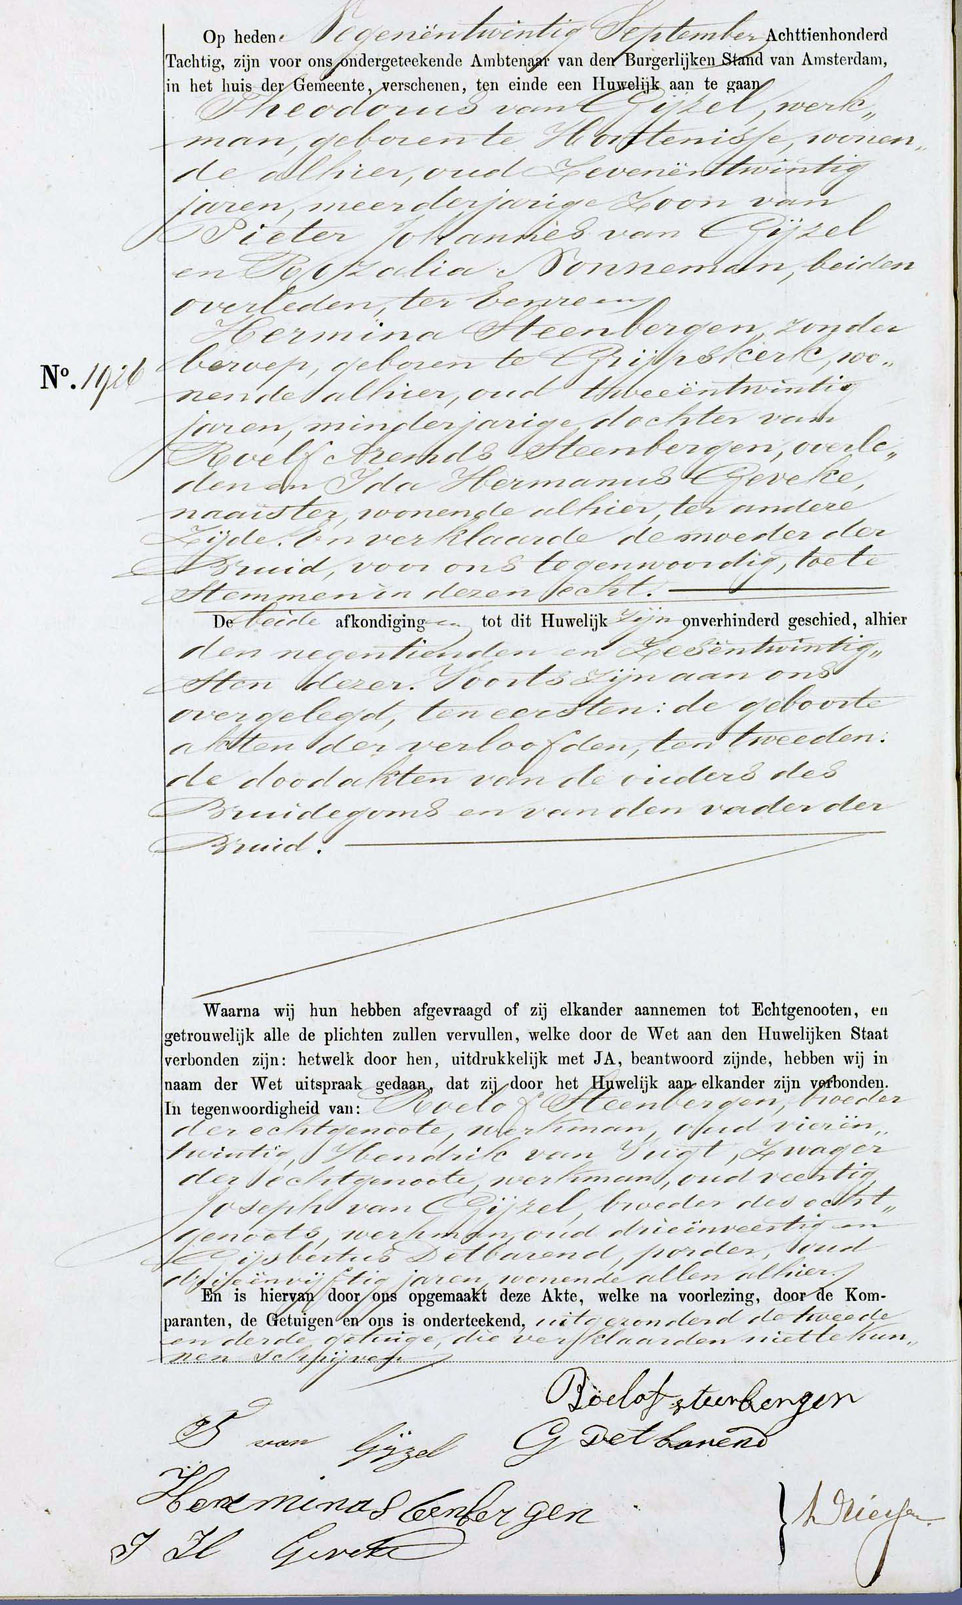 Op heden Negenëntwintig September Achttienhonderd
Tachtig, zijn voor ons ondergeteekende Ambtenaar van den Burgerlijken Stand van Amsterdam,
in het huis der Gemeente, verschenen, ten einde een Huwelijk aan te gaan
Theodorus van Gijzel, werk„
man, geboren te Hontenisse, wonen„
de alhier, oud Zevenëntwintig
jaren, meerderjarige Zoon van
Pieter Johannes van Gijzel
en Rozalia Nonneman, beiden
overleden, ter eenre en
Hermina Steenbergen, zonder
beroep, geboren te Grijpskerk, wo„
nende alhier, oud tweeëntwintig
No. 1926
jaren, minderjarige dochter van
Roelf Arends Steenbergen, overle„
den en Ida Hermanus Geveke,
naaister, wonende alhier, ter andere
Zijde. En verklaarde de moeder der
Bruid, voor ons tegenwoordig, toe te
Stemmen in dezen echt.
De beide afkondigingen tot dit Huwelijk zijn onverhinderd geschied, alhier
den negentienden en Zesëntwintig„
sten dezer. Voorts zijn aan ons
overgelegd, ten eersten: de geboorte
akten der verloofden, ten tweeden:
de doodakten van de ouders des
Bruidegoms en van den vader der
Bruid.
Waarna wij hun hebben afgevraagd of zij elkander aannemen tot Echtgenooten, en
getrouwelijk alle de plichten zullen vervullen, welke door de Wet aan den Huwelijken Staat
verbonden zijn: hetwelk door hen, uitdrukkelijk met JA, beantwoord zijnde, hebben wij in
naam der Wet uitspraak gedaan, dat zij door het Huwelijk aan elkander zijn verbonden.
In tegenwoordigheid van: Roelof Steenbergen, broeder
der echtgenoote, werkman, oud vierën„
twintig, Hendrik van Vugt, Zwager
der echtgenoote, werkman, oud veertig
Joseph van Gijzel, broeder des echt„
genoots, werkman, oud drieënveertig en
Gijsbertus Detbarend, porder, oud
drieënvijftig jaren, wonende allen alhier.
En is hiervan door ons opgemaakt deze Akte, welke na voorlezing, door de Kom-
paranten, de Getuigen en ons is onderteekend, uitgezonderd de tweede
en derde getuige, die verklaarden niet te kun„
nen schrijven
Roelof steenbergen
T van Gijzel G Detbarend
Hermina Steenbergen
I H Geveke